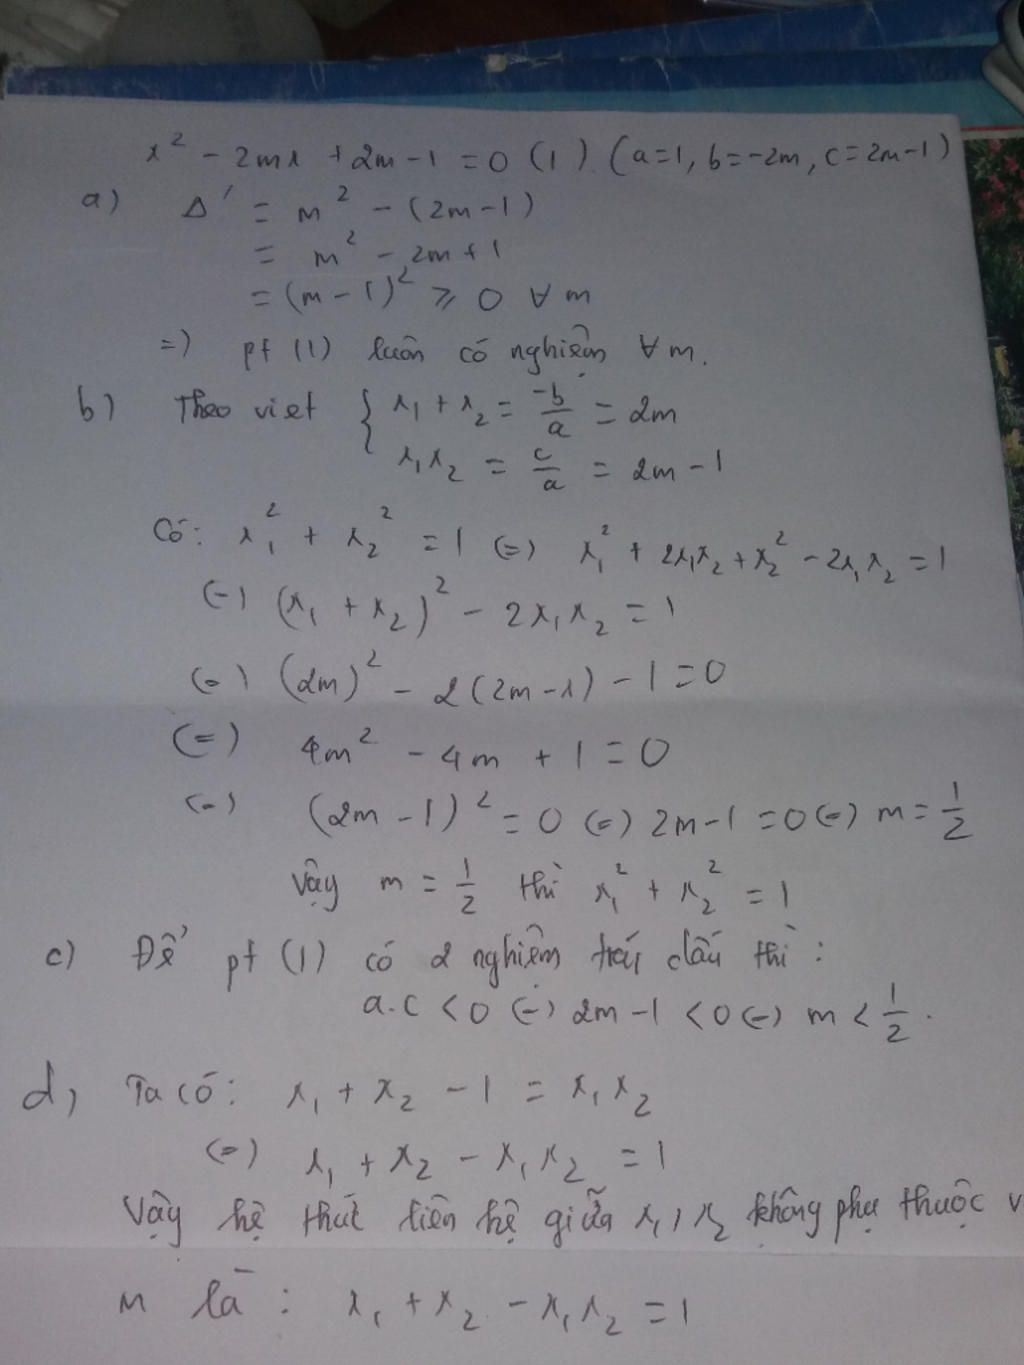 x² - 2mx + 2m - 1 = 0 (1). (a=1, b=-2m, c=2m-1)
a) Δ' = m² - (2m-1)
= m² - 2m + 1
= (m-1)² ⩾ 0 ∀ m
=) pt (1) luôn có nghiệm ∀ m.
b) Theo viet { x₁ + x₂ = -b/a = 2m
x₁x₂ = c/a = 2m - 1
Có: x₁² + x₂² = 1 (=) x₁² + 2x₁x₂ + x₂² - 2x₁x₂ = 1
(=) (x₁ + x₂)² - 2x₁x₂ = 1
(=) (2m)² - 2(2m-1) - 1 = 0
(=) 4m² - 4m + 1 = 0
(=) (2m-1)² = 0 (=) 2m-1 = 0 (=) m = 1/2
Vậy m = 1/2 thì x₁² + x₂² = 1
c) Để pt (1) có 2 nghiệm trái dấu thì:
a.c < 0 (=) 2m-1 < 0 (=) m < 1/2.
d, Ta có: x₁ + x₂ - 1 = x₁x₂
(=) x₁ + x₂ - x₁x₂ = 1
Vậy hệ thức liên hệ giữa x₁, x₂ không phụ thuộc v
m là: x₁ + x₂ - x₁x₂ = 1